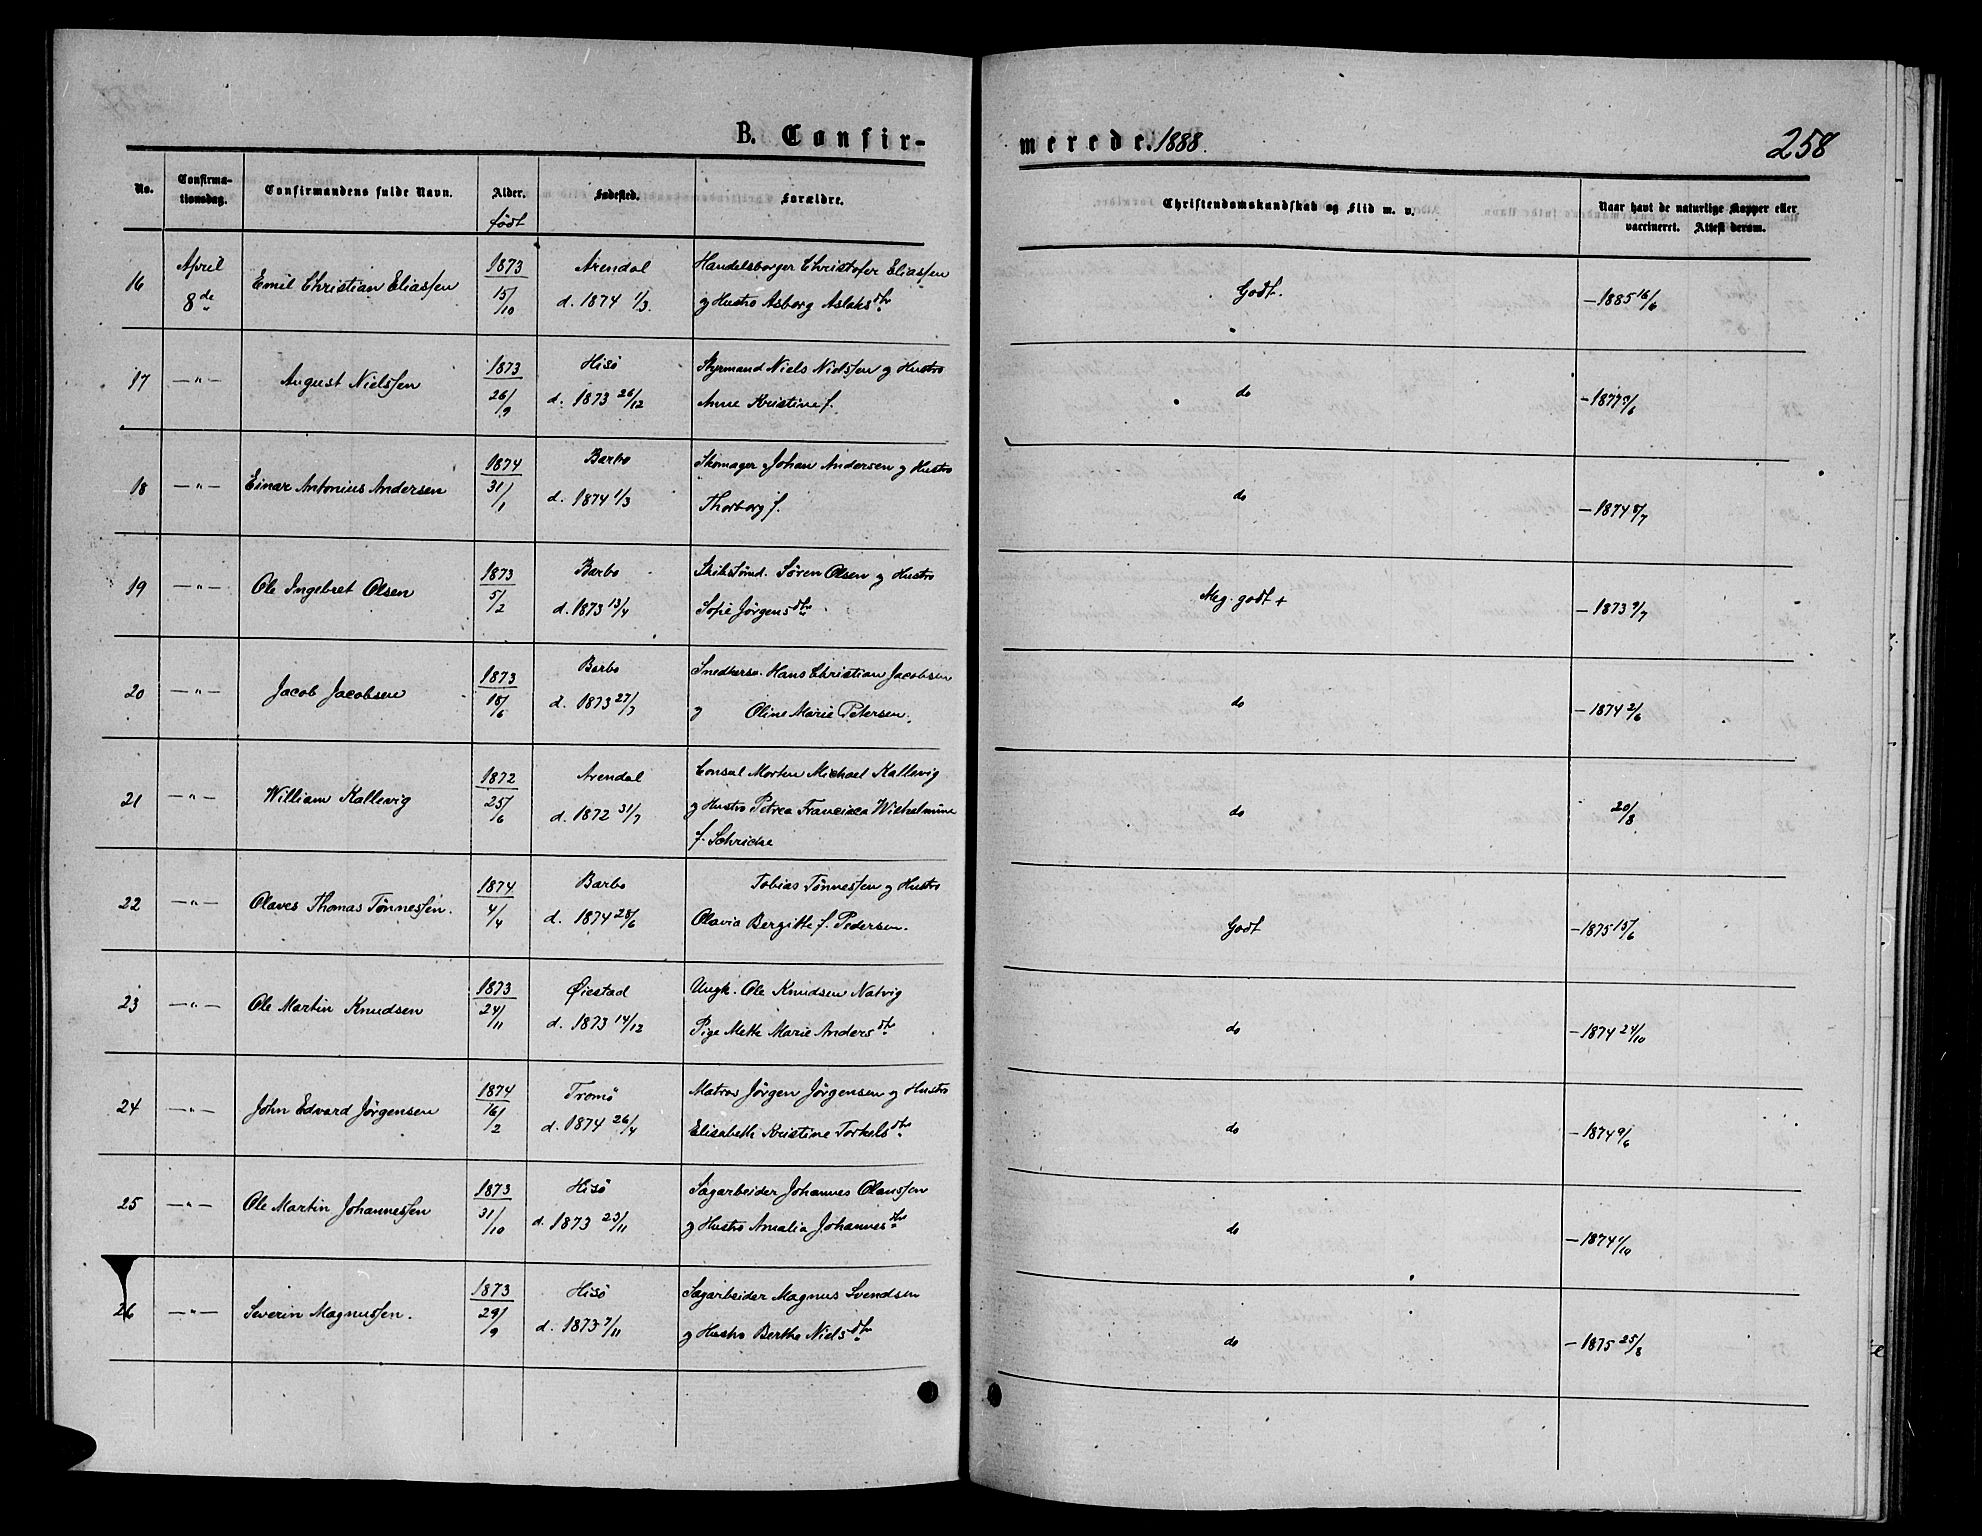 B. Confir-
merede. 1888.
258
No.
Confirma-
tionsdag.
Confirmandens fulde Navn.
Alder.
født
Fødested.
Forældre.
Christendomskundskab og Flid m. v.
Naar havt de naturlige Kopper eller
vaccineret. Attest derom.
16 April 8de Emil Christian Eliassen 1873 15/10 Arendal d. 1874 1/3. Handelsborger Christofer Eliassen
og Hustro Asborg Aslaksdtr Godt. – 1885 16/6
17 —"— August Nielssen 1873 26/9 Hisø d. 1873 26/12 Styrmand Niels Nielssen og Hustro
Anne Kristine f. do – 1877 3/6
18 —"— Einar Antonius Andersen 1874 31/1 Barbo d. 1874 1/3 Skomager Johan Andersen og Hustro
Thorborg f. do – 1874 8/7
19 —"— Ole Ingebret Olsen 1873 5/2 Barbo d. 1873 13/4 Skibstømd. Søren Olsen og Hustro
Sofie Jørgensdtr Meg. godt + – 1873 9/7
20 —"— Jacob Jacobsen 1873 18/6 Barbo d. 1873 27/7 Snedkersv. Hans Christian Jacobsen
og Oline Marie Petersen. do – 1874 2/6
21 —"— William Kallevig 1872 25/6 Arendal d. 1872 31/7 Consul Morten Michael Kallevig
og Hustro Petrea Francisca Wilhelmine
f. do 20/8
22 —"— Olaves Thomas Tønnessen. 1874 4/4 Barbo d. 1874 28/6 Tobias Tønnessen og Hustro
Olavia Bergitte f. Pedersen. Godt – 1875 15/6
23 —"— Ole Martin Knudsen 1873 24/11 Øiestad d. 1873 14/12 Ungk. Ole Knudsen Natvig
Pige Mette Marie Andersdtr do – 1874 24/10
24 —"— John Edvard Jørgensen 1874 16/2 Tromø d. 1874 26/4 Matros Jørgen Jørgensen og Hustro
Elisabeth Kristine Torkelsdtr do – 1874 9/6
25 —"— Ole Martin Johannessen 1873 31/10 Hisø d. 1873 23/11 Sagarbeider Johannes Olaussen
og Hustro Amalia Johannesdtr do – 1874 1/10
26 —"— Severin Magnussen. 1873 29/9 Hisø d. 1873 7/11 Sagarbeider Magnus Svendsen
og Hustro Berthe Nielsdtr do – 1875 25/8